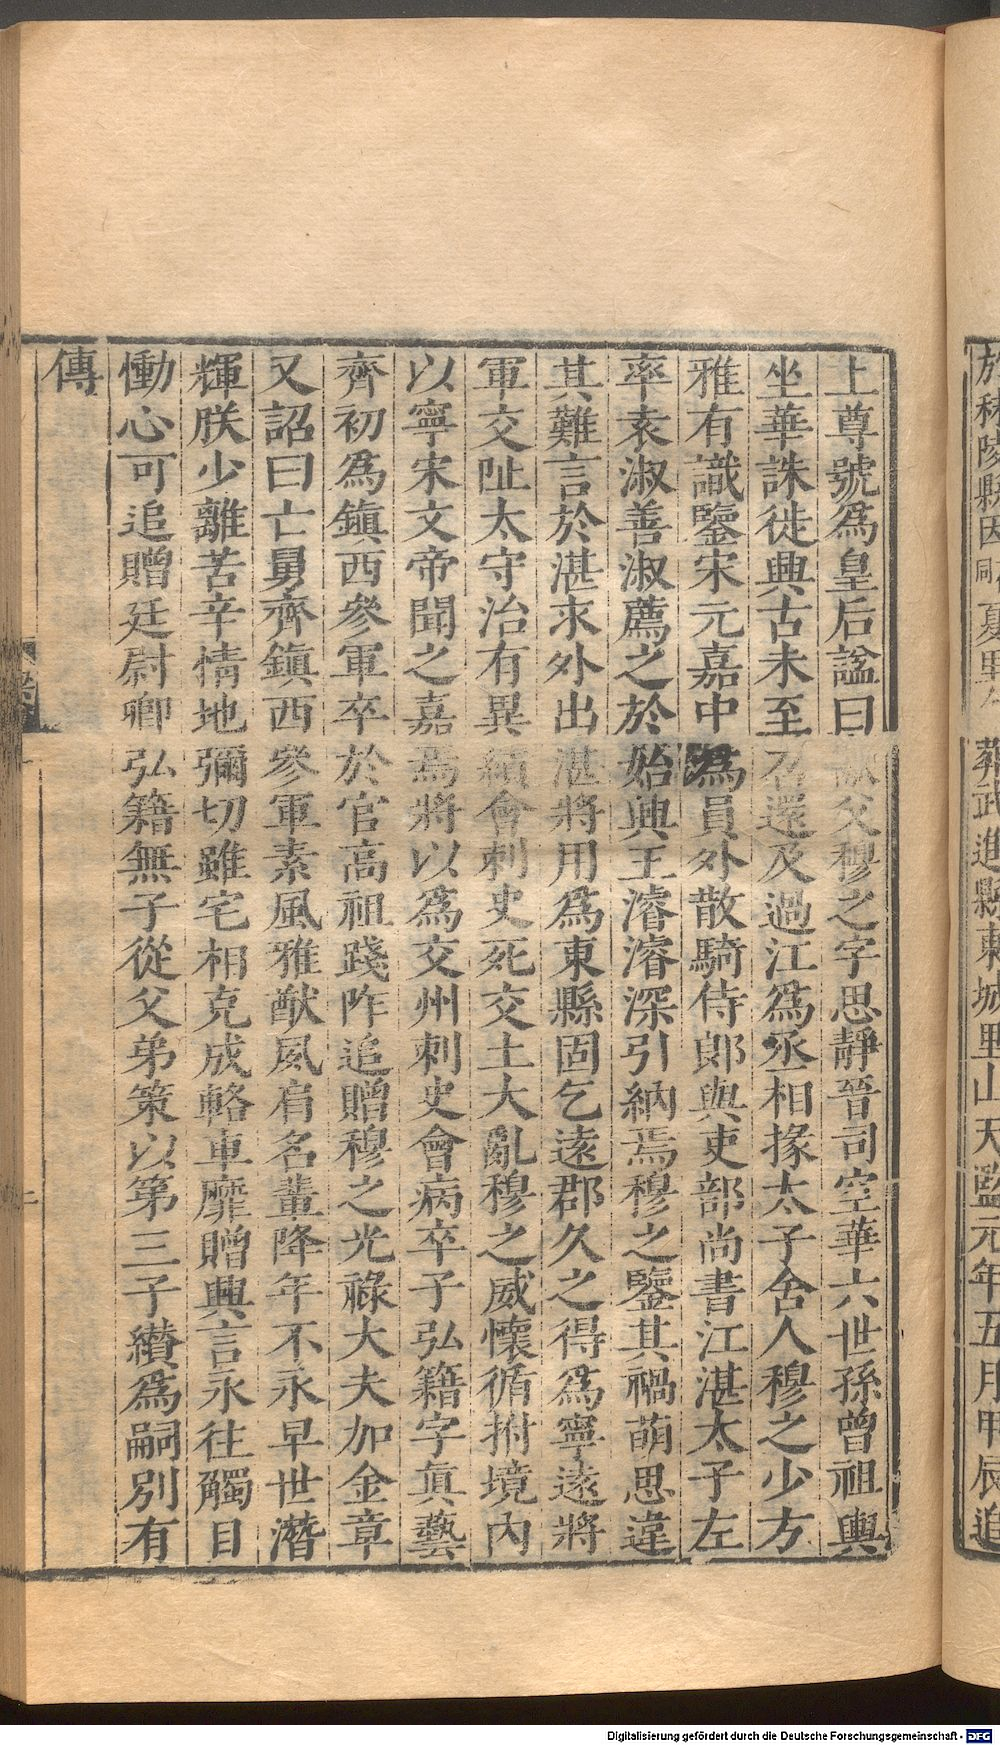 於秣陵縣同夏里葬武進縣東城里山天監元年五月甲辰追
上尊號爲皇后諡曰獻父穆之字思靜晉司空華六世孫曾祖輿
坐華誅徙興古未至召還及過江爲丞相掾太子舍人穆之少方
雅有識鑒宋元嘉中爲員外散騎侍郎與吏部尚書江湛太子左
率袁淑善淑薦之於始興王濬濬深引納焉穆之鑒其禍萌思違
其難言於湛求外出湛將用爲東縣固乞遠郡久之得爲寧遠將
軍交阯太守治有異績會刺史死交土大亂穆之威懷循拊境內
以寧宋文帝聞之嘉焉將以爲交州刺史會病卒子弘籍字真藝
齊初爲鎮西參軍卒於官高祖踐阼追贈穆之光祿大夫加金章
又詔曰亡舅齊鎮西參軍素風雅猷夙肩名輩降年不永早世潛
輝朕少離苦辛情地彌切雖宅相克成輅車靡贈興言永往觸目
慟心可追贈廷尉卿弘籍無子從父弟策以第三子纘爲嗣別有
傳
Digitalisierung gefördert durch die Deutsche Forschungsgemeinschaft - DFG